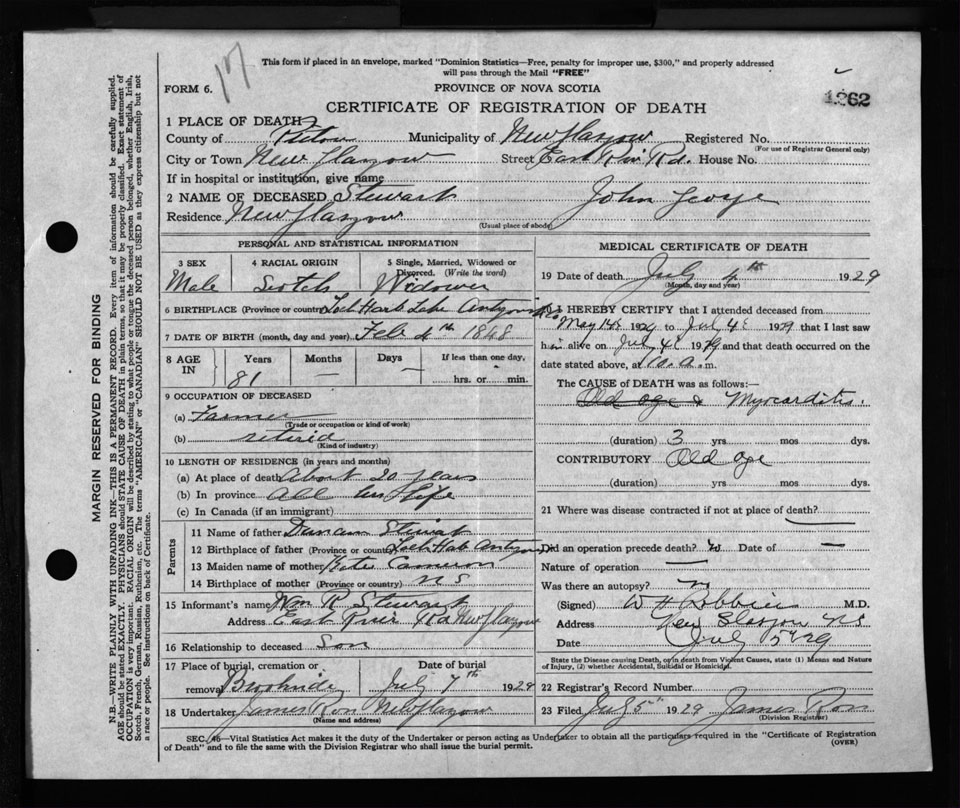 17
This form if placed in an envelope, marked "Dominion Statistics—Free, penalty for improper use, $300," and properly addressed
will pass through the Mail "FREE"
FORM 6.
PROVINCE OF NOVA SCOTIA
1262
CERTIFICATE OF REGISTRATION OF DEATH
1 PLACE OF DEATH
County of Pictou Municipality of New Glasgow Registered No.
(For use of Registrar General only)
City or Town New Glasgow Street East Riv Rd. House No.
If in hospital or institution, give name
2 NAME OF DECEASED Stewart John George
Residence New Glasgow
(Usual place of abode)
PERSONAL AND STATISTICAL INFORMATION
3 SEX 4 RACIAL ORIGIN 5 Single, Married, Widowed or
Divorced. (Write the word)
Male Scotch Widower
6 BIRTHPLACE (Province or country)
7 DATE OF BIRTH (month, day and year) Feb 4th 1848
8 AGE IN Years Months Days If less than one day,
81 — — hrs. or min.
9 OCCUPATION OF DECEASED
(a) Farmer
(Trade or occupation or kind of work)
(b) retired
(Kind of industry)
10 LENGTH OF RESIDENCE (in years and months)
(a) At place of death About 20 years
(b) In province All his life
(c) In Canada (if an immigrant)
Parents
11 Name of father Duncan Stewart
12 Birthplace of father (Province or country)
13 Maiden name of mother Cameron
14 Birthplace of mother (Province or country) N S
15 Informant's name Wm R Stewart
Address East River Rd New Glasgow
16 Relationship to deceased Son
17 Place of burial, cremation or Date of burial
removal July 7th 1929
18 Undertaker James Ron New Glasgow
(Name and address)
MEDICAL CERTIFICATE OF DEATH
19 Date of death July 4th 1929
(Month, day and year)
I HEREBY CERTIFY that I attended deceased from
May 1929 to July 4 1929 that I last saw
him alive on July 4 1929 and that death occurred on the
date stated above, at 10. a. m.
The CAUSE OF DEATH was as follows:—
Old age & Myocarditis.
(duration) 3 yrs mos dys.
CONTRIBUTORY Old age
(duration) yrs mos dys.
21 Where was disease contracted if not at place of death?
Did an operation precede death? no Date of —
Nature of operation —
Was there an autopsy? no
(Signed) W H Robbins M.D.
Address New Glasgow NS
Date July 5th 29
State the Disease causing Death, or in death from Violent Causes, state (1) Means and Nature
of Injury, (2) whether Accidental, Suicidal or Homicidal.
22 Registrar's Record Number
23 Filed July 5th 1929 James Ron
(Division Registrar)
SEC. 46—Vital Statistics Act makes it the duty of the Undertaker or person acting as Undertaker to obtain all the particulars required in the "Certificate of Registration
of Death" and to file the same with the Division Registrar who shall issue the burial permit.
(OVER)
MARGIN RESERVED FOR BINDING
N.B—WRITE PLAINLY WITH UNFADING INK—THIS IS A PERMANENT RECORD. Every item of information should be carefully supplied.
AGE should be stated EXACTLY. PHYSICIANS should STATE CAUSE OF DEATH in plain terms, so that it may be properly classified. Exact statement of
OCCUPATION is very important. RACIAL ORIGIN will be described by stating to what people or tongue the deceased person belonged, whether English, Irish,
Scotch, French, German, Russian, Ruthenian, etc. The terms "AMERICAN" or "CANADIAN" SHOULD NOT BE USED as they express citizenship but not
a race or people. See instructions on back of Certificate.